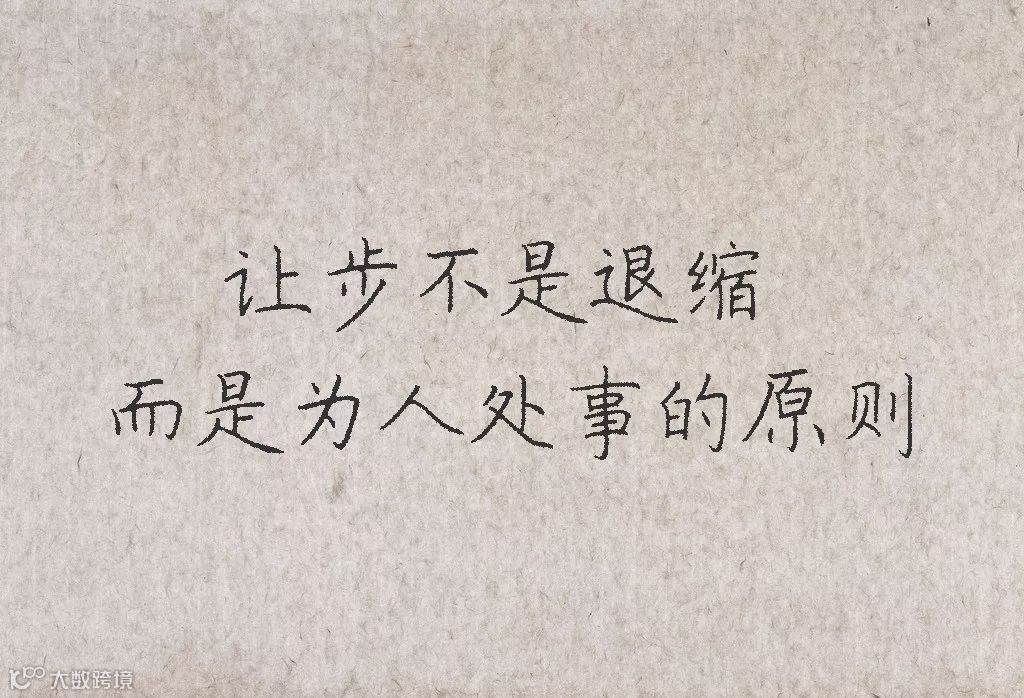 让步不是退缩
而是为人处事的原则
大数跨境